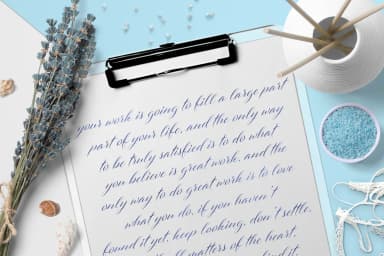 your work is going to fill a large part
part of your life, and the only way
to be truly satisfied is to do what
you believe is great work. and the
only way to do great work is to love
what you do. if you haven't
found it yet, keep looking. don't settle.
all matters of the heart,
find it.